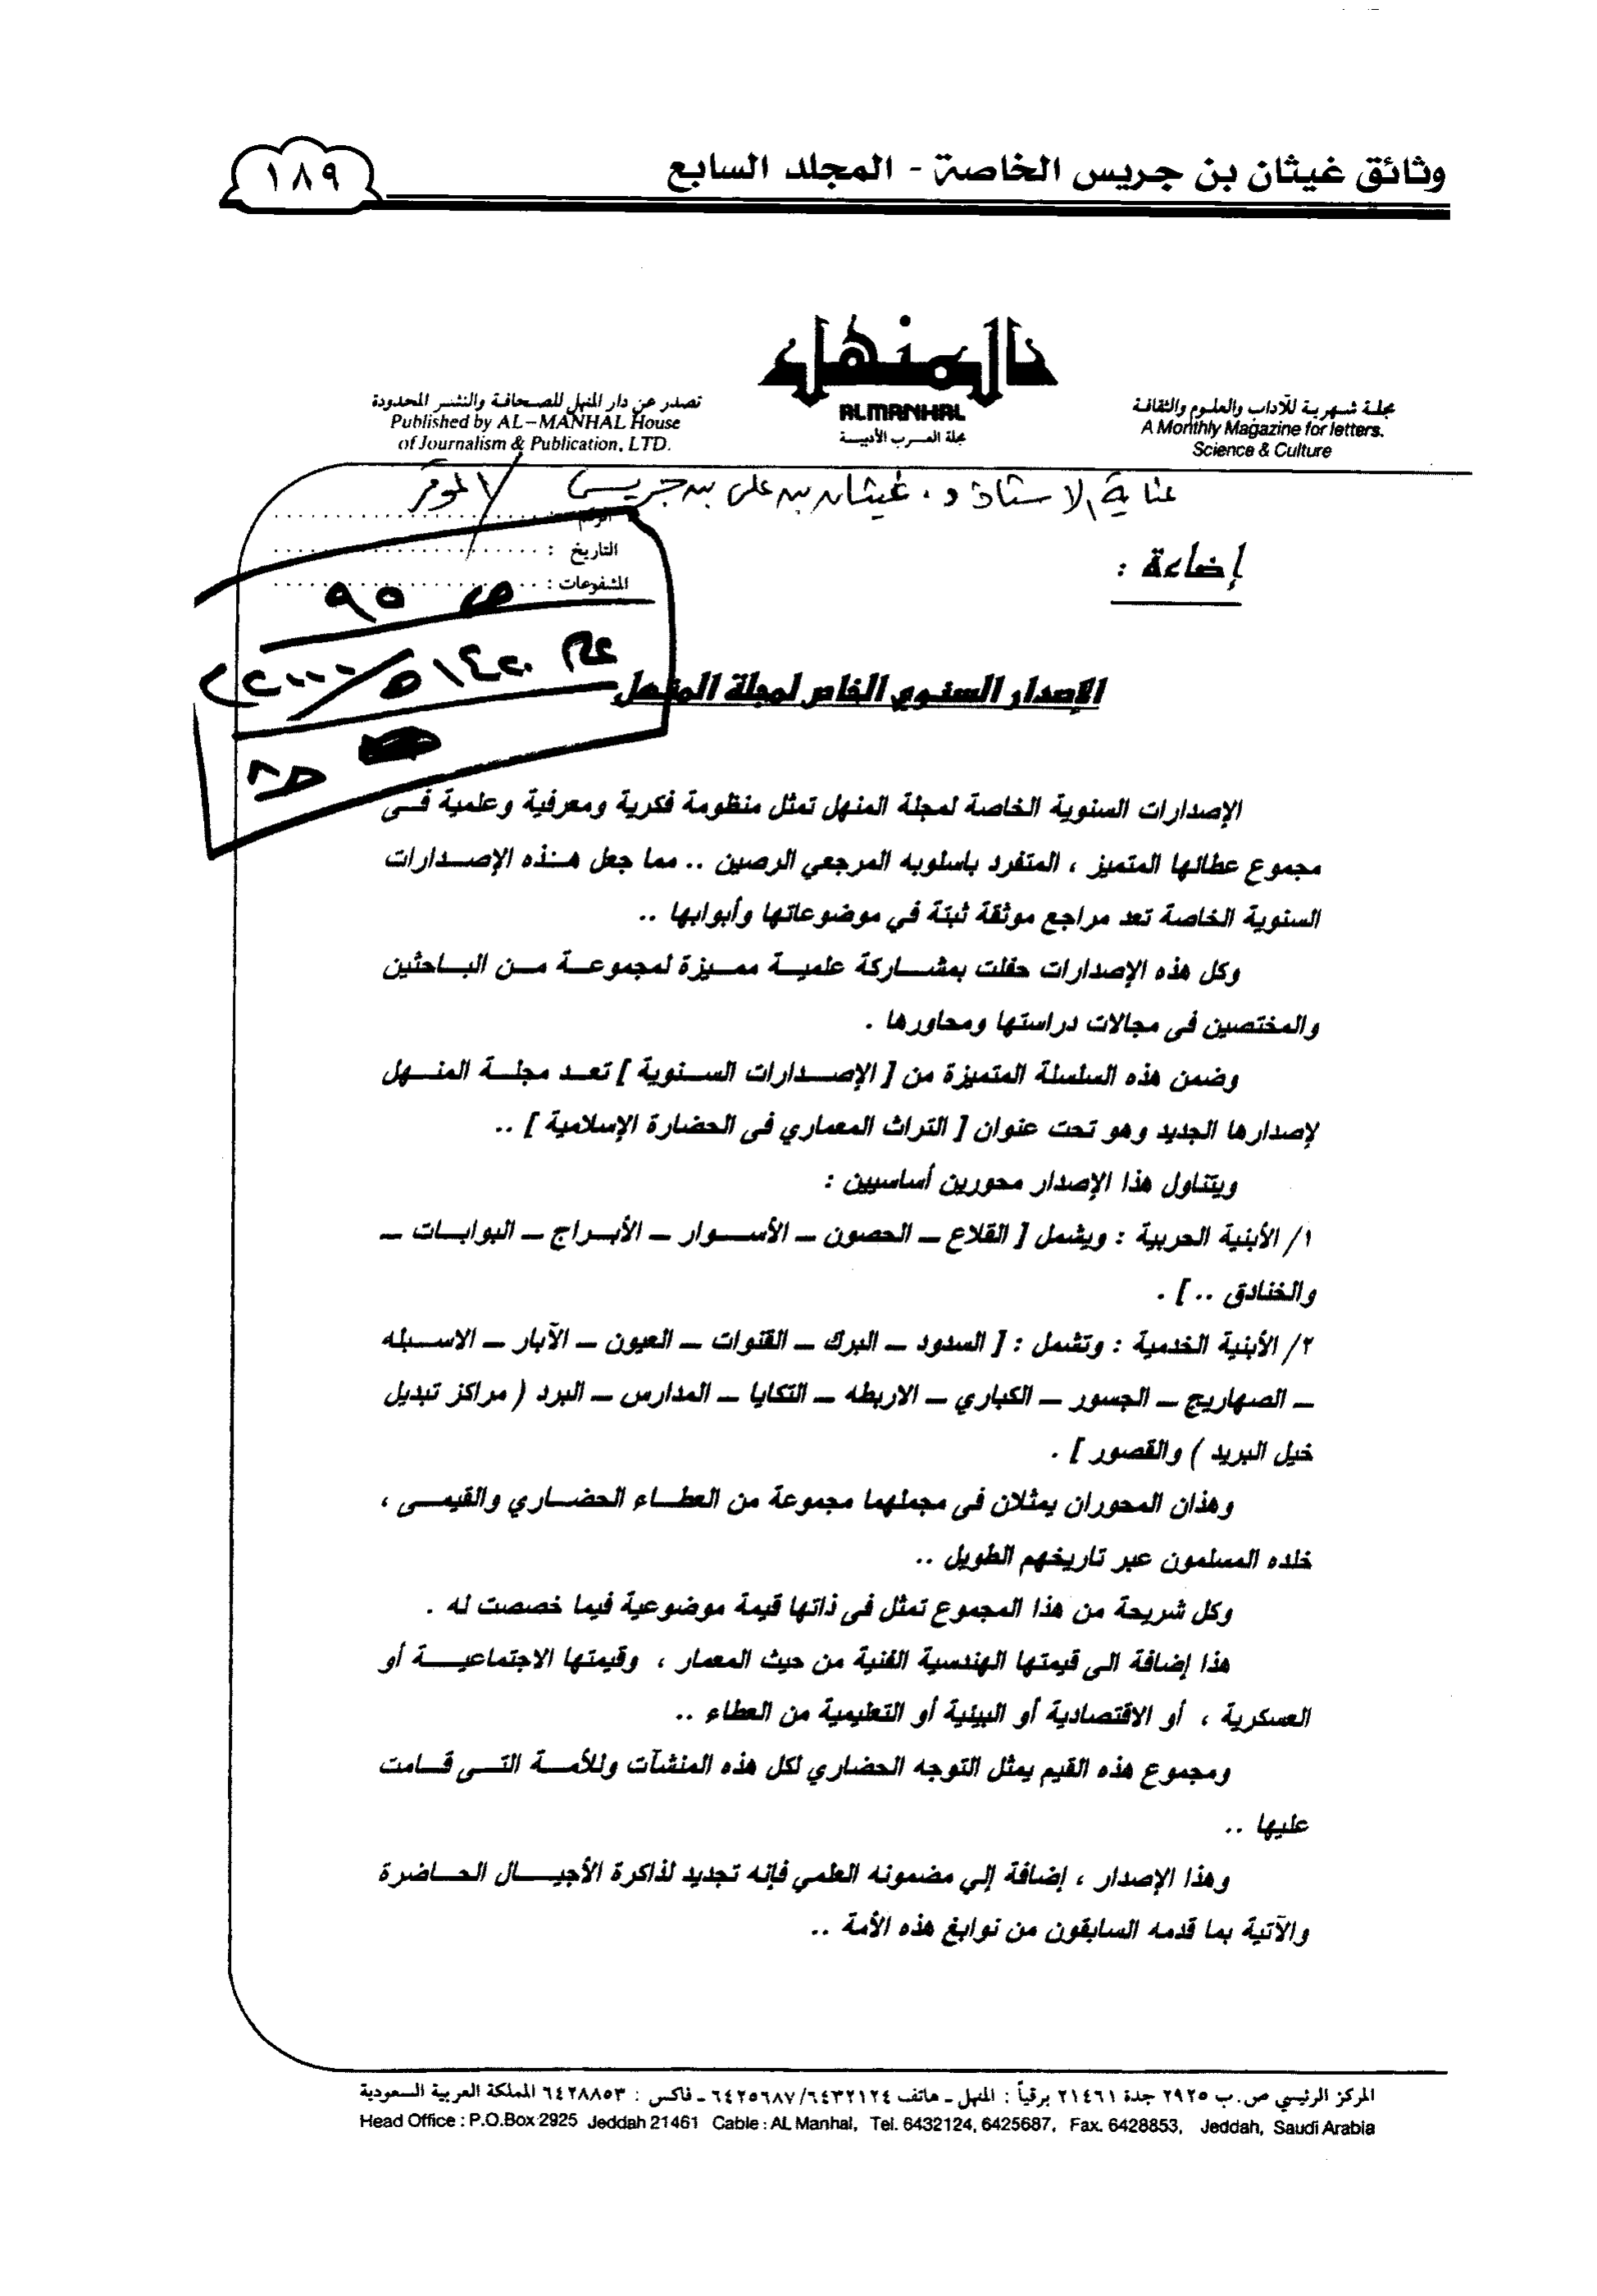 وثائق غيثان بن جريس الخاصة - المجلد السابع
١٨٩
المنهل
ALMANHAL
مجلة العرب الأدبية
مجلة شهرية للآداب والعلوم والثقافة
A Monthly Magazine for letters.
Science & Culture
تصدر عن دار المنهل للصحافة والنشر المحدودة
Published by AL-MANHAL House
of Journalism & Publication, LTD.
عناية الاستاذ د. غيثان بن علي بن جريس / الموقر
الرقم :
التاريخ :
المشفوعات :
ص ٩٥
عام ١٤٢٠هـ/٢٠٠٠
إضاءة :
الإصدار السنوي الخاص لمجلة المنهل
الإصدارات السنوية الخاصة لمجلة المنهل تمثل منظومة فكرية ومعرفية وعلمية فى
مجموع عطائها المتميز ، المتفرد باسلوبه المرجعي الرصين .. مما جعل هذه الإصدارات
السنوية الخاصة تعد مراجع موثقة ثبتة في موضوعاتها وأبوابها ..
وكل هذه الإصدارات حفلت بمشاركة علمية مميزة لمجموعة من الباحثين
والمختصين فى مجالات دراستها ومحاورها .
وضمن هذه السلسلة المتميزة من [ الإصدارات السنوية ] تعد مجلة المنهل
لإصدارها الجديد وهو تحت عنوان [ التراث المعماري فى الحضارة الإسلامية ] ..
ويتناول هذا الإصدار محورين أساسيين :
١/ الأبنية الحربية : ويشمل [ القلاع ــ الحصون ــ الأسوار ــ الأبراج ــ البوابات ــ
والخنادق .. ] .
٢/ الأبنية الخدمية : وتشمل : [ السدود ــ البرك ــ القنوات ــ العيون ــ الآبار ــ الاسبله
ــ الصهاريج ــ الجسور ــ الكباري ــ الاربطه ــ التكايا ــ المدارس ــ البرد ( مراكز تبديل
خيل البريد ) والقصور ] .
وهذان المحوران يمثلان فى مجملهما مجموعة من العطاء الحضاري والقيمى ،
خلده المسلمون عبر تاريخهم الطويل ..
وكل شريحة من هذا المجموع تمثل فى ذاتها قيمة موضوعية فيما خصصت له .
هذا إضافة الى قيمتها الهندسية الفنية من حيث المعمار ، وقيمتها الاجتماعية أو
العسكرية ، أو الاقتصادية أو البيئية أو التعليمية من العطاء ..
ومجموع هذه القيم يمثل التوجه الحضاري لكل هذه المنشآت وللأمة التى قامت
عليها ..
وهذا الإصدار ، إضافة إلي مضمونه العلمي فإنه تجديد لذاكرة الأجيال الحاضرة
والآتية بما قدمه السابقون من نوابغ هذه الأمة ..
المركز الرئيسي ص.ب ٢٩٢٥ جدة ٢١٤٦١ برقياً : المنهل ـ هاتف ٦٤٣٢١٢٤/٦٤٢٥٦٨٧ ـ فاكس : ٦٤٢٨٨٥٣ المملكة العربية السعودية
Head Office : P.O.Box 2925 Jeddah 21461 Cable : AL Manhal, Tel. 6432124, 6425687, Fax. 6428853, Jeddah, Saudi Arabia